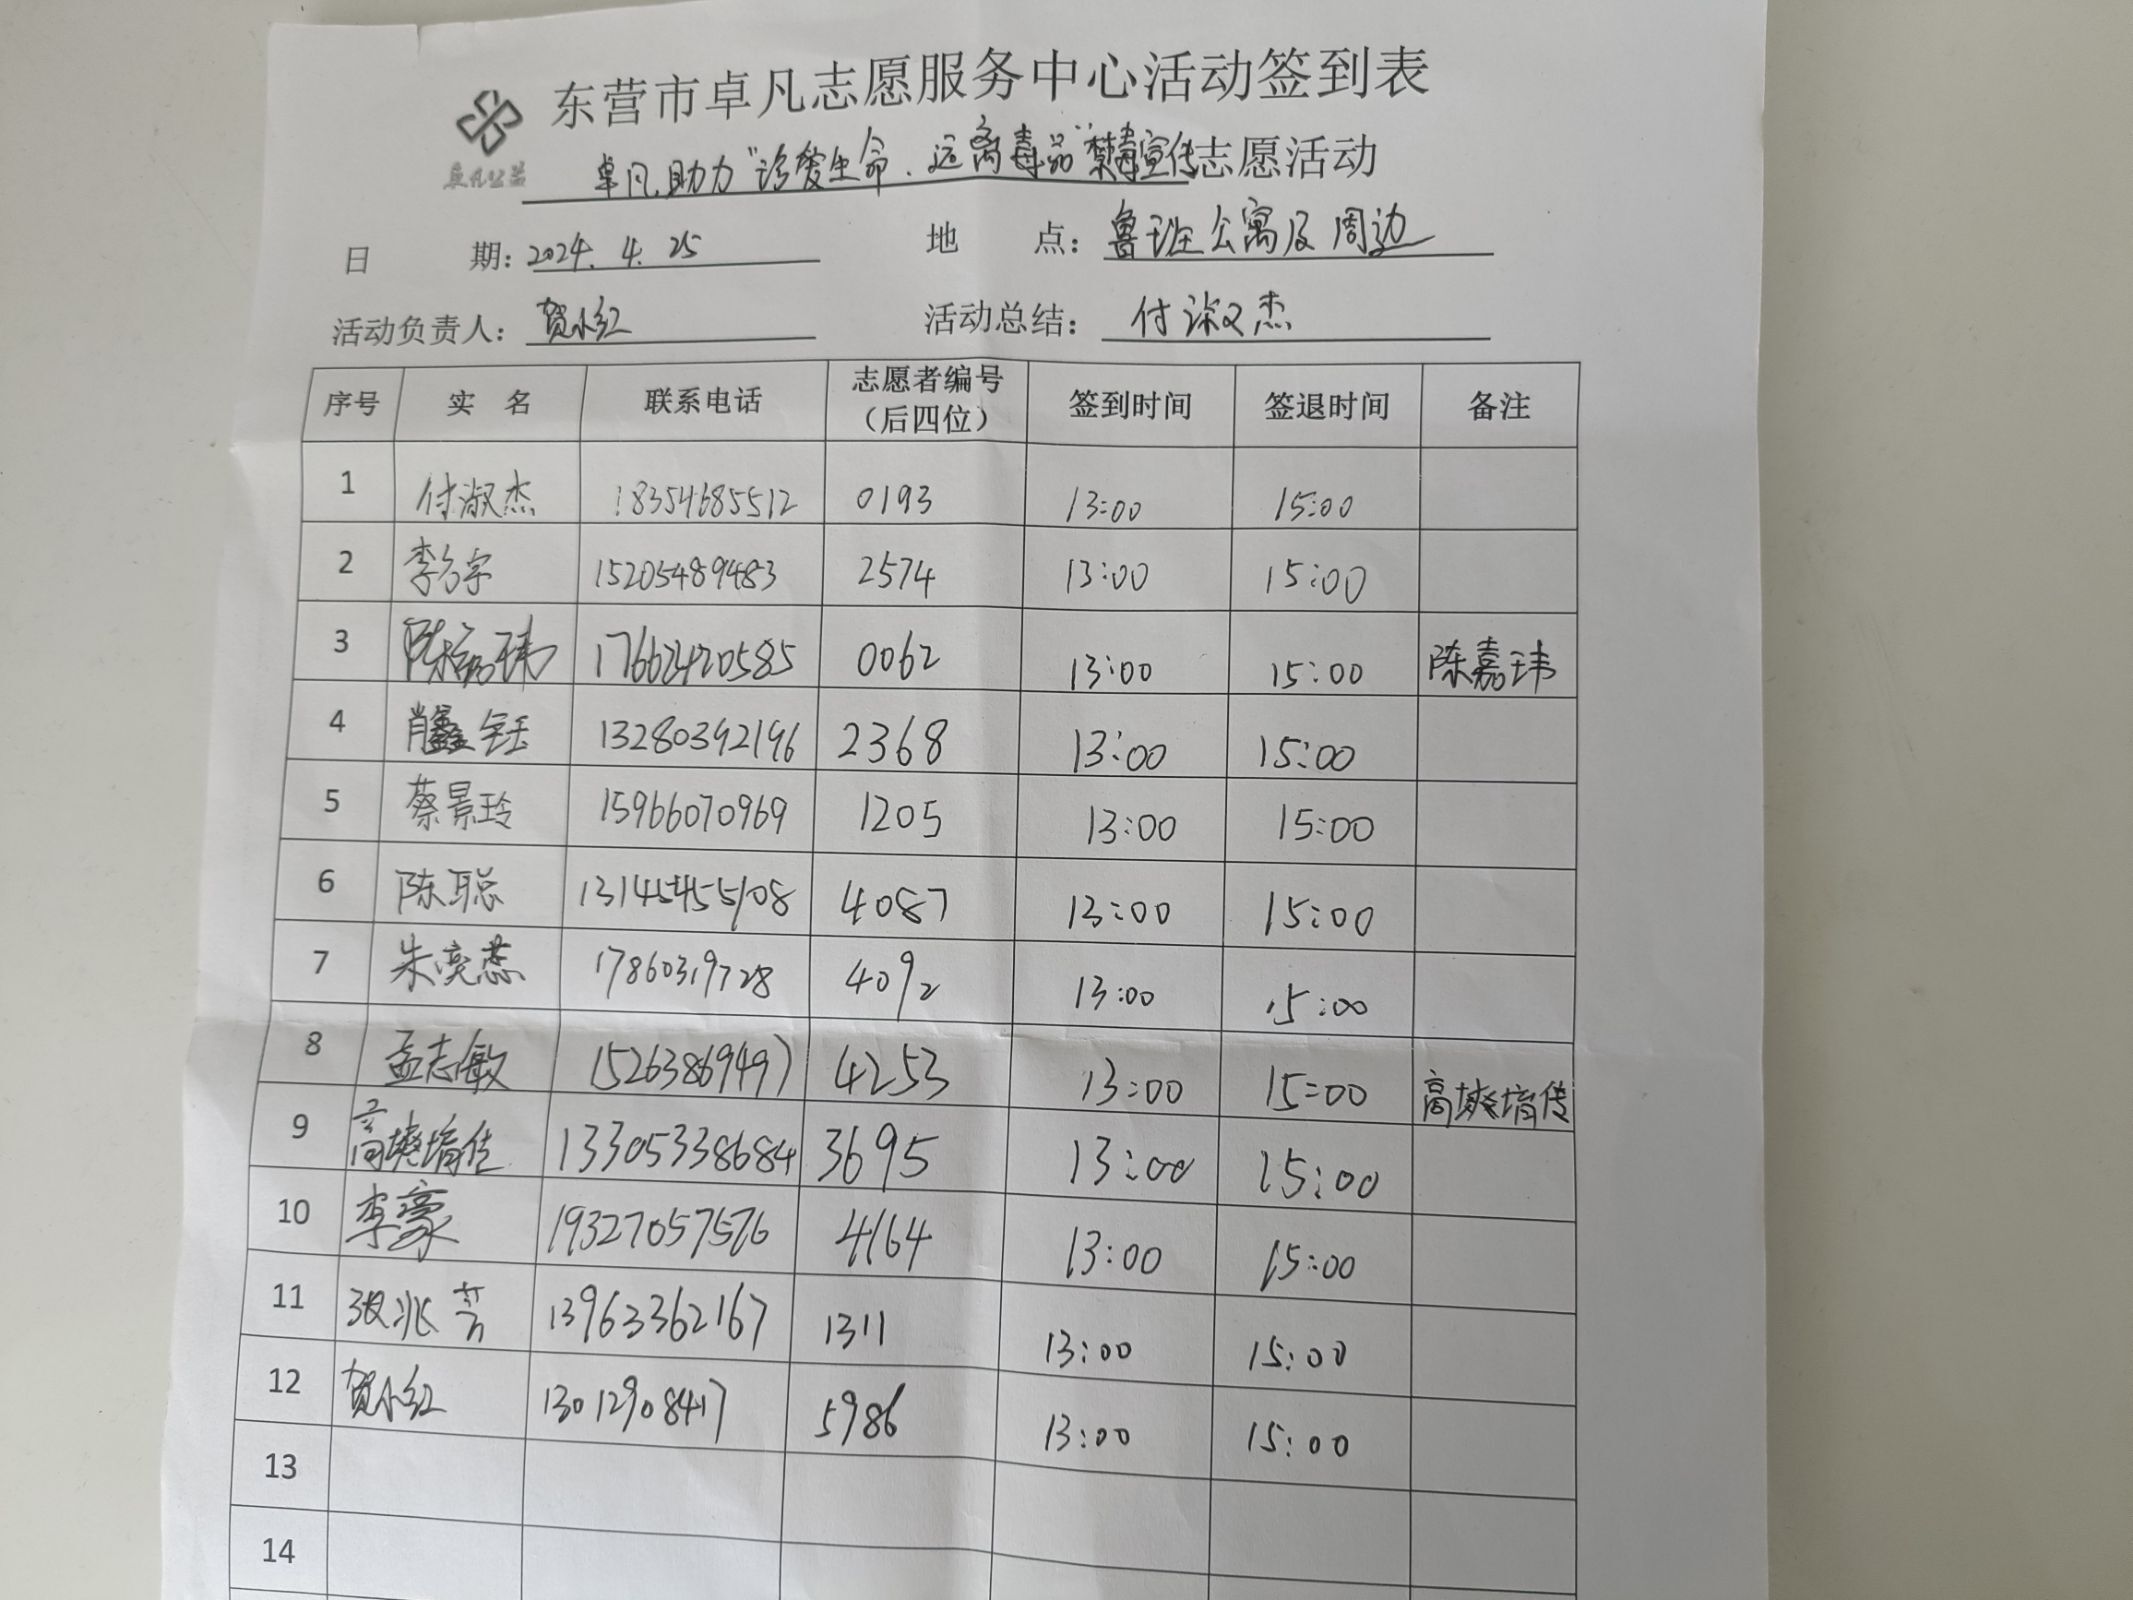 东营市卓凡志愿服务中心活动签到表
卓凡公益
卓凡助力“珍爱生命、远离毒品”禁毒宣传志愿活动
日 期：2024.4.25 地 点：鲁班公寓及周边
活动负责人：贺小红 活动总结：付淑杰
序号 实 名 联系电话 志愿者编号（后四位） 签到时间 签退时间 备注
1 付淑杰 18354685512 0193 13:00 15:00
2 李方宇 15205489483 2574 13:00 15:00
3 陈嘉玮 17662420585 0062 13:00 15:00 陈嘉玮
4 肖鑫钰 13280392196 2368 13:00 15:00
5 蔡景玲 15966070969 1205 13:00 15:00
6 陈聪 13145455108 4087 13:00 15:00
7 朱奕蕊 17860319728 4092 13:00 15:00
8 孟志敏 15263869497 4253 13:00 15:00 高塽堉传
9 高塽堉传 13305338684 3695 13:00 15:00
10 李豪 19327057576 4164 13:00 15:00
11 张兆芳 13963362167 1311 13:00 15:00
12 贺小红 13012908417 5986 13:00 15:00
13
14